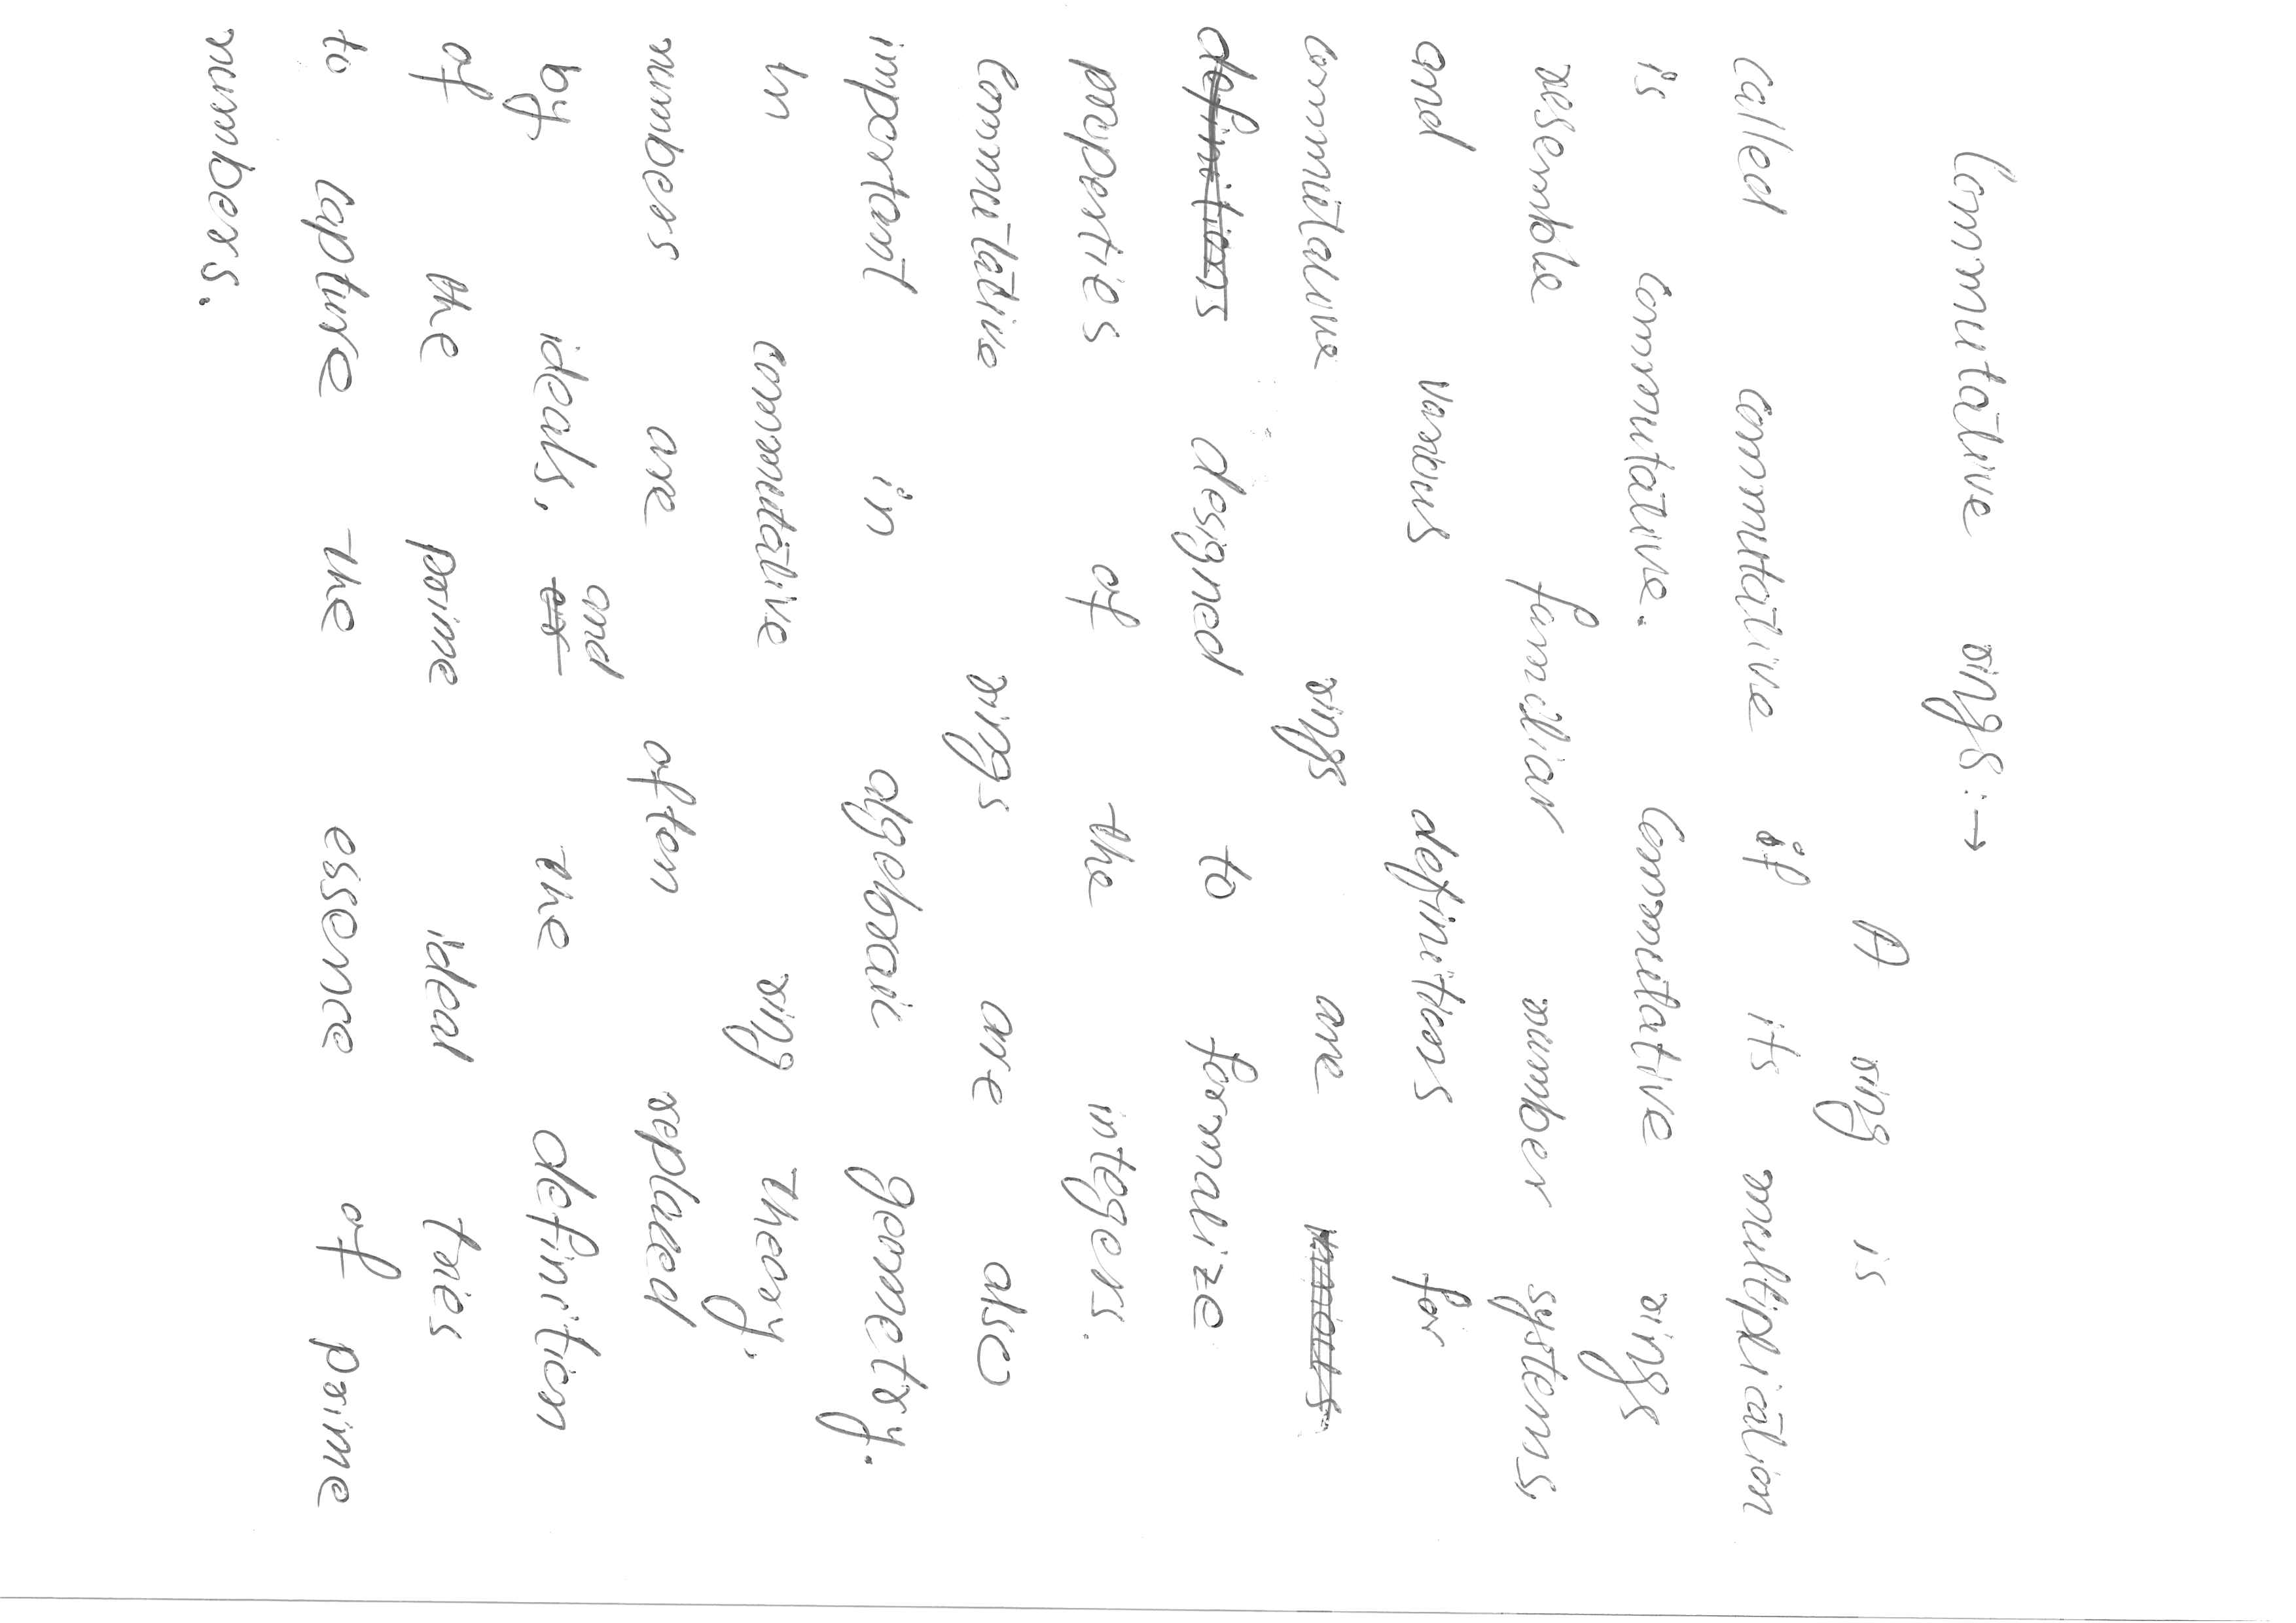 Commutative rings:→
A ring is
called commutative if its multiplication
is commutative. Commutative rings
resemble familiar number systems,
and various definitions for
commutative rings are various
definitions designed to formalize
properties of the integers.
Commutative rings are also
important in algebraic geometry.
In commutative ring theory,
numbers are often replaced
and
by ideals, or the definition
of the prime ideal tries
to capture the essence of prime
numbers.